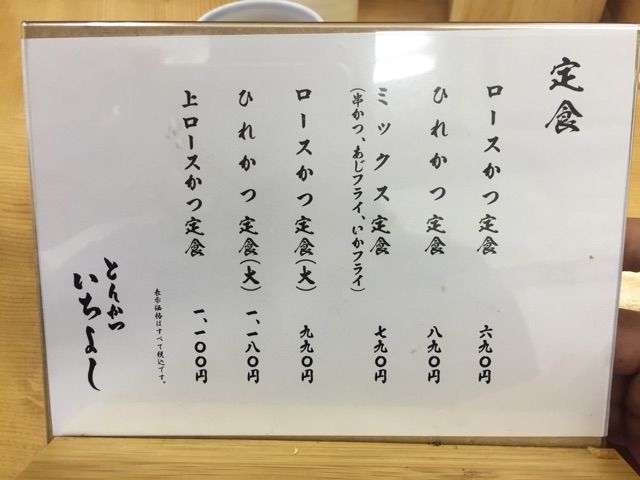 定食
ロースかつ定食 六九〇円
ひれかつ定食 八九〇円
ミックス定食 七九〇円
(串かつ、あじフライ、いかフライ)
ロースかつ定食(大) 九九〇円
ひれかつ定食(大) 一、一八〇円
上ロースかつ定食 一、一〇〇円
表示価格はすべて税込です。
とんかつ
いちよし